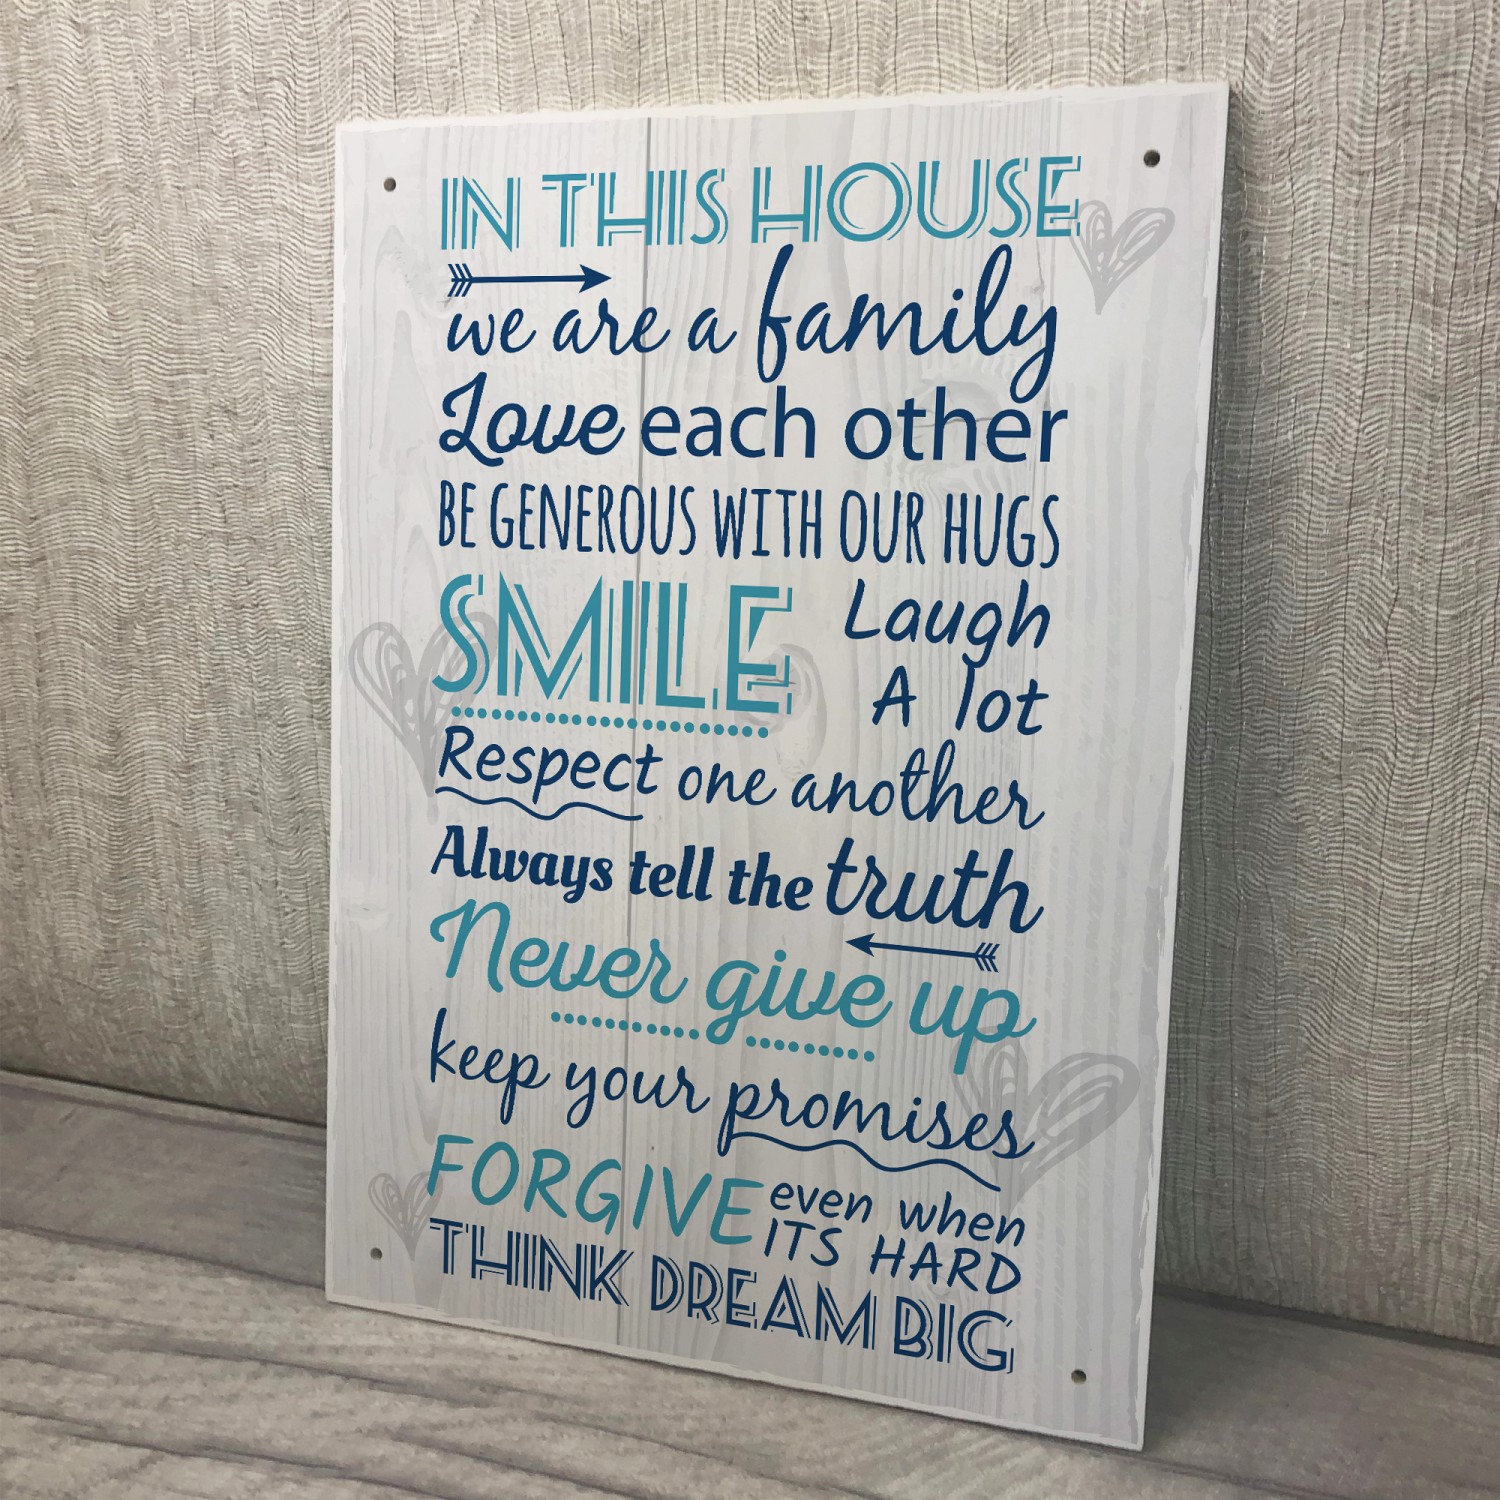 IN THIS HOUSE
we are a family
Love each other
BE GENEROUS WITH OUR HUGS
SMILE
Laugh
A lot
Respect one another
Always tell the truth
Never give up
keep your promises
FORGIVE
even when
ITS HARD
THINK DREAM BIG